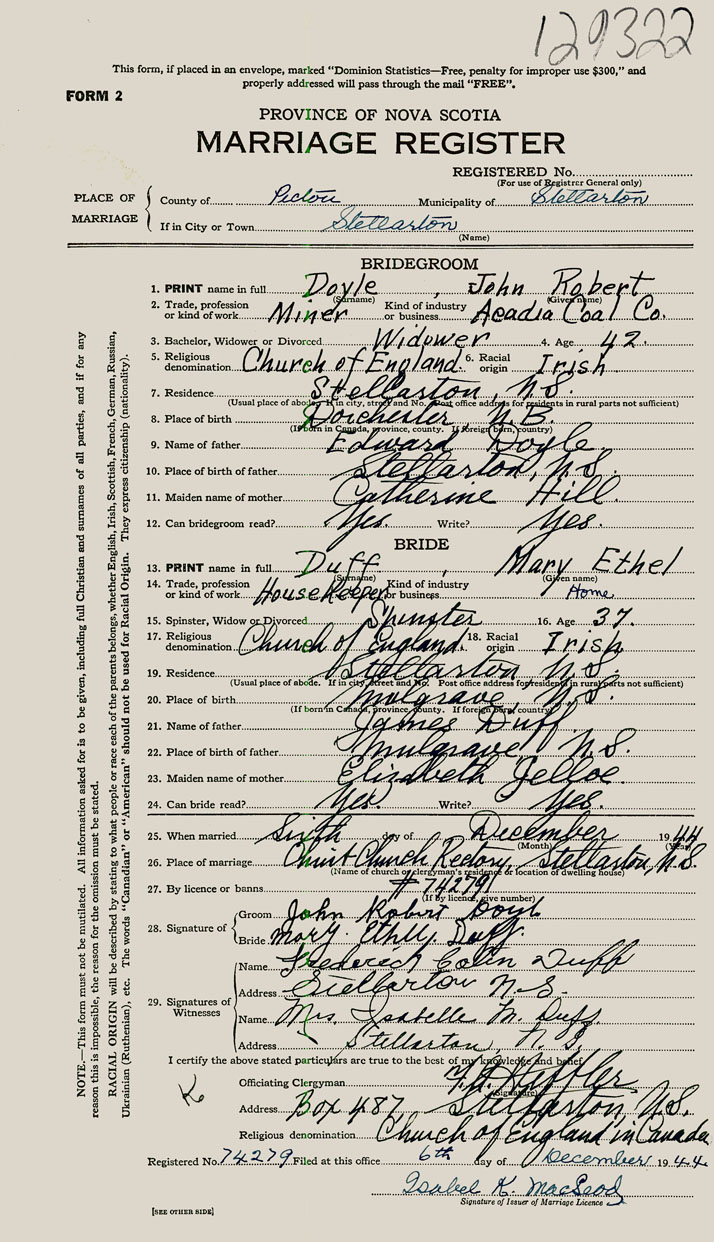 129322
This form, if placed in an envelope, marked "Dominion Statistics—Free, penalty for improper use $300," and
properly addressed will pass through the mail "FREE".
FORM 2
PROVINCE OF NOVA SCOTIA
MARRIAGE REGISTER
REGISTERED No.
(For use of Registrer General only)
PLACE OF MARRIAGE
County of Pictou Municipality of Stellarton
If in City or Town Stellarton
(Name)
BRIDEGROOM
1. PRINT name in full Doyle, John Robert
(Surname) (Given name)
2. Trade, profession or kind of work Miner Kind of industry or business Acadia Coal Co.
3. Bachelor, Widower or Divorced Widower 4. Age 42.
5. Religious denomination Church of England. 6. Racial origin Irish
7. Residence Stellarton, N.S.
(Usual place of abode. If in city, street and No. Post office address for residents in rural parts not sufficient)
8. Place of birth Dorchester, N.B.
(If born in Canada, province, county. If foreign born, country)
9. Name of father Edward Doyle
10. Place of birth of father Stellarton, N.S.
11. Maiden name of mother Catherine Hill
12. Can bridegroom read? Yes. Write? Yes.
BRIDE
13. PRINT name in full Duff, Mary Ethel
(Surname) (Given name)
14. Trade, profession or kind of work HouseKeeper Kind of industry or business Home
15. Spinster, Widow or Divorced Spinster 16. Age 37.
17. Religious denomination Church of England. 18. Racial origin Irish
19. Residence Stellarton N.S.
(Usual place of abode. If in city, street and No. Post office address for residents in rural parts not sufficient)
20. Place of birth Mulgrave, N.S.
(If born in Canada, province, county. If foreign born, country)
21. Name of father James Duff
22. Place of birth of father Mulgrave N.S.
23. Maiden name of mother Elizabeth Jelloe
24. Can bride read? Yes. Write? Yes.
25. When married Sixth day of December 1944
(Month) (Year)
26. Place of marriage Christ Church Rectory, Stellarton, N.S.
(Name of church or clergyman's residence or location of dwelling house)
27. By licence or banns #74279
(If by licence, give number)
28. Signature of
Groom John Robert Doyle
Bride Mary Ethel Duff.
29. Signatures of Witnesses
Name Frederick Colin Duff
Address Stellarton N.S.
Name Mrs. Isabelle M. Duff
Address Stellarton, N.S.
I certify the above stated particulars are true to the best of my knowledge and belief.
Officiating Clergyman
(Signature)
Address Box 487 Stellarton, N.S.
Religious denomination Church of England in Canada
Registered No. 74279 Filed at this office 6th day of December 1944.
Isabel K. MacLeod
Signature of Issuer of Marriage Licence
[SEE OTHER SIDE]
NOTE.—This form must not be mutilated. All information asked for is to be given, including full Christian and surnames of all parties, and if for any
reason this is impossible, the reason for the omission must be stated.
RACIAL ORIGIN will be described by stating to what people or race each of the parents belongs, whether English, Irish, Scottish, French, German, Russian,
Ukrainian (Ruthenian), etc. The words "Canadian" or "American" should not be used for Racial Origin. They express citizenship (nationality).